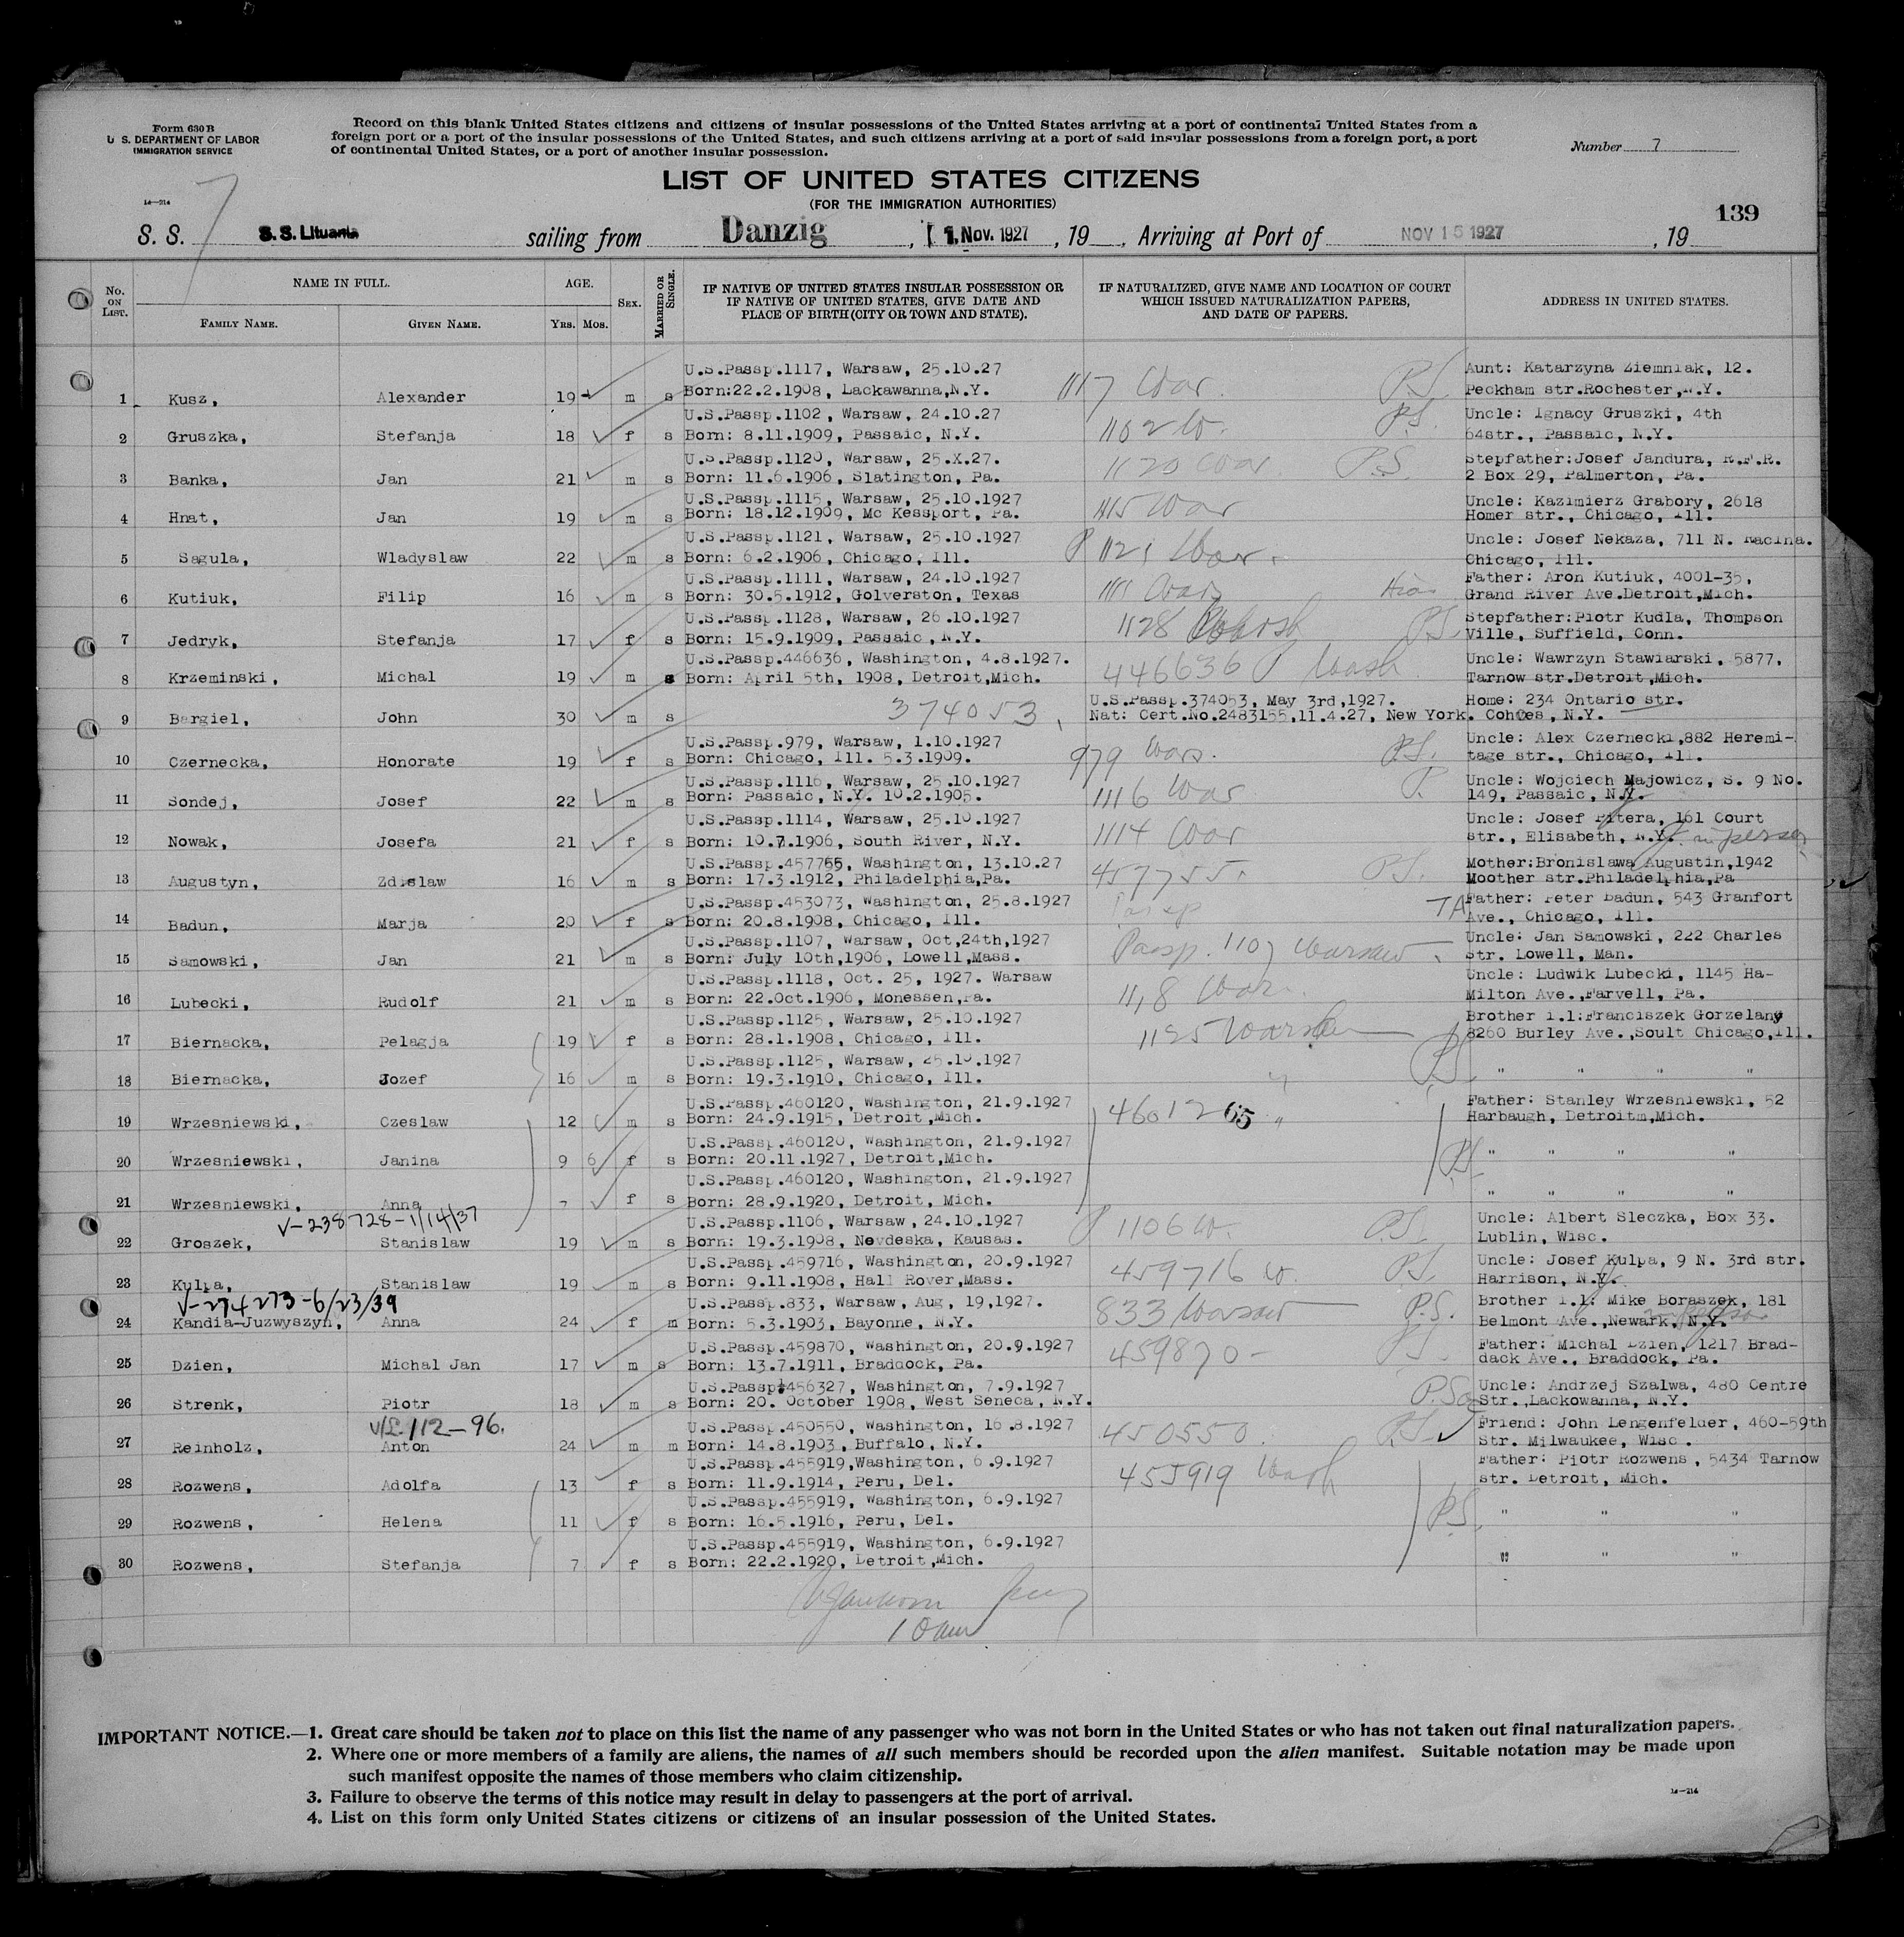 Form 630 B
U. S. DEPARTMENT OF LABOR
IMMIGRATION SERVICE
Record on this blank United States citizens and citizens of insular possessions of the United States arriving at a port of continental United States from a
foreign port or a port of the insular possessions of the United States, and such citizens arriving at a port of said insular possessions from a foreign port, a port
of continental United States, or a port of another insular possession.
Number 7
LIST OF UNITED STATES CITIZENS
(FOR THE IMMIGRATION AUTHORITIES)
14-214
7
139
S. S. S. S. Lituania sailing from Danzig, 1. Nov. 1927, 19 , Arriving at Port of NOV 15 1927, 19
No. ON LIST.
NAME IN FULL.
FAMILY NAME. GIVEN NAME.
AGE.
YRS. MOS.
SEX.
MARRIED OR SINGLE.
IF NATIVE OF UNITED STATES INSULAR POSSESSION OR
IF NATIVE OF UNITED STATES, GIVE DATE AND
PLACE OF BIRTH (CITY OR TOWN AND STATE).
IF NATURALIZED, GIVE NAME AND LOCATION OF COURT
WHICH ISSUED NATURALIZATION PAPERS,
AND DATE OF PAPERS.
ADDRESS IN UNITED STATES.
U.S.Passp.1117, Warsaw, 25.10.27 Aunt: Katarzyna Ziemniak, 12.
1 Kusz, Alexander 19 m s Born:22.2.1908, Lackawanna,N.Y. 1117 War. P.S. Peckham str.Rochester,N.Y.
U.S.Passp.1102, Warsaw, 24.10.27 Uncle: Ignacy Gruszki, 4th
2 Gruszka, Stefanja 18 f s Born: 8.11.1909, Passaic, N.Y. 1102 W. P.S. 64str., Passaic, N.Y.
U.S.Passp.1120, Warsaw, 25.X.27. Stepfather:Josef Jandura, R.F.R.
3 Banka, Jan 21 m s Born: 11.6.1906, Slatington, Pa. 1120 War. P.S. 2 Box 29, Palmerton, Pa.
U.S.Passp.1115, Warsaw, 25.10.1927 Uncle: Kazimierz Grabory, 2618
4 Hnat, Jan 19 m s Born: 18.12.1909, Mc Kessport, Pa. 1115 War Homer str., Chicago, Ill.
U.S.Passp.1121, Warsaw, 25.10.1927 Uncle: Josef Nekaza, 711 N. Racina.
5 Sagula, Wladyslaw 22 m s Born: 6.2.1906, Chicago, Ill. P 1121 War. Chicago, Ill.
U.S.Passp.1111, Warsaw, 24.10.1927 Father: Aron Kutiuk, 4001-35,
6 Kutiuk, Filip 16 m s Born: 30.5.1912, Golverston, Texas 1111 War Grand River Ave.Detroit,Mich.
U.S.Passp.1128, Warsaw, 26.10.1927 Stepfather:Piotr Kudla, Thompson
7 Jedryk, Stefanja 17 f s Born: 15.9.1909, Passaic, N.Y. 1128 P.S. Ville, Suffield, Conn.
U.S.Passp.446636, Washington, 4.8.1927. Uncle: Wawrzyn Stawiarski, 5877,
8 Krzeminski, Michal 19 m s Born: April 5th, 1908, Detroit,Mich. 446636 P Wash Tarnow str.Detroit,Mich.
U.S.Passp.374053, May 3rd,1927. Home: 234 Ontario str.
9 Bargiel, John 30 m s 374053. Nat: Cert.No.2483155,11.4.27, New York. Cohoes, N.Y.
U.S.Passp.979, Warsaw, 1.10.1927 Uncle: Alex Czernecki,882 Heremi-
10 Czernecka, Honorate 19 f s Born: Chicago, Ill. 5.3.1909. 979 Wars. P.S. tage str., Chicago, Ill.
U.S.Passp.1116, Warsaw, 25.10.1927 Uncle: Wojciech Majowicz, S. 9 No.
11 Sondej, Josef 22 m s Born: Passaic, N.Y. 10.2.1905. 1116 War P. 149, Passaic, N.Y.
U.S.Passp.1114, Warsaw, 25.10.1927 Uncle: Josef Pitera, 161 Court
12 Nowak, Josefa 21 f s Born: 10.7.1906, South River, N.Y. 1114 War str., Elisabeth, N.Y. in person
U.S.Passp.457755, Washington, 13.10.27 Mother:Bronislawa Augustin,1942
13 Augustyn, Zdislaw 16 m s Born: 17.3.1912, Philadelphia,Pa. 457755. P.S. Moother str.Philadelphia,Pa
U.S.Passp.453073, Washington, 25.8.1927 Father: Peter Badun, 543 Granfort
14 Badun, Marja 20 f s Born: 20.8.1908, Chicago, Ill. Passp TA Ave., Chicago, Ill.
U.S.Passp.1107, Warsaw, Oct,24th,1927 Uncle: Jan Samowski, 222 Charles
15 Samowski, Jan 21 m s Born: July 10th,1906, Lowell,Mass. Passp. 1107 Warsaw. Str. Lowell, Man.
U.S.Passp.1118, Oct. 25, 1927. Warsaw Uncle: Ludwik Lubecki, 1145 Ha-
16 Lubecki, Rudolf 21 m s Born: 22.Oct.1906, Monessen,Pa. 1118 War. Milton Ave.,Farvell, Pa.
U.S.Passp.1125, Warsaw, 25.10.1927 Brother i.l:Franciszek Gorzelany
17 Biernacka, Pelagja 19 f s Born: 28.1.1908, Chicago, Ill. 1125 Warsaw 8260 Burley Ave.,Soult Chicago,Ill.
U.S.Passp.1125, Warsaw, 25.10.1927
18 Biernacka, Jozef 16 m s Born: 19.3.1910, Chicago, Ill. " P.S. " " " "
U.S.Passp.460120, Washington, 21.9.1927 Father: Stanley Wrzesniewski, 52
19 Wrzesniewski, Czeslaw 12 m s Born: 24.9.1915, Detroit,Mich. 46012 65 " Harbaugh, Detroitm,Mich.
U.S.Passp.460120, Washington, 21.9.1927
20 Wrzesniewski, Janina 9 6 f s Born: 20.11.1927, Detroit,Mich. P.S. " " " "
U.S.Passp.460120, Washington, 21.9.1927
21 Wrzesniewski, Anna 7 f s Born: 28.9.1920, Detroit, Mich. " " " "
V-238728-1/14/37
U.S.Passp.1106, Warsaw, 24.10.1927 Uncle: Albert Sleczka, Box 33.
22 Groszek, Stanislaw 19 m s Born: 19.3.1908, Nevdeska, Kausas. P 1106 W. P.S. Lublin, Wisc.
U.S.Passp.459716, Washington, 20.9.1927 Uncle: Josef Kulpa, 9 N. 3rd str.
23 Kulpa, Stanislaw 19 m s Born: 9.11.1908, Hall Rover,Mass. 459716 W. P.S. Harrison, N.Y.
V-274273-6/23/39
U.S.Passp.833, Warsaw, Aug, 19,1927. Brother i.l: Mike Boraszek, 181
24 Kandia-Juzwyszyn, Anna 24 f m Born: 5.3.1903, Bayonne, N.Y. 833 Warsaw P.S. Belmont Ave.,Newark, N.Y.
U.S.Passp.459870, Washington, 20.9.1927 Father: Michal Dzien, 1217 Brad-
25 Dzien, Michal Jan 17 m s Born: 13.7.1911, Braddock, Pa. 459870- P.S. dack Ave., Braddock, Pa.
U.S.Passp.456327, Washington, 7.9.1927 Uncle: Andrzej Szalwa, 480 Centre
26 Strenk, Piotr 18 m s Born: 20. October 1908, West Seneca, N.Y. P.S. Str.,Lackowanna, N.Y.
V/L 112-96.
U.S.Passp.450550, Washington, 16.8.1927 Friend: John Lengenfelder, 460-59th
27 Reinholz, Anton 24 m m Born: 14.8.1903, Buffalo, N.Y. 450550. P.S. Str. Milwaukee, Wisc.
U.S.Passp.455919,Washington, 6.9.1927 Father: Piotr Rozwens, 5434 Tarnow
28 Rozwens, Adolfa 13 f s Born: 11.9.1914, Peru, Del. 455919 Wash str. Detroit, Mich.
U.S.Passp.455919, Washington, 6.9.1927
29 Rozwens, Helena 11 f s Born: 16.5.1916, Peru, Del. P.S. " " "
U.S.Passp.455919, Washington, 6.9.1927
30 Rozwens, Stefanja 7 f s Born: 22.2.1920, Detroit,Mich. " " "
10 am
IMPORTANT NOTICE.—1. Great care should be taken not to place on this list the name of any passenger who was not born in the United States or who has not taken out final naturalization papers.
2. Where one or more members of a family are aliens, the names of all such members should be recorded upon the alien manifest. Suitable notation may be made upon
such manifest opposite the names of those members who claim citizenship.
3. Failure to observe the terms of this notice may result in delay to passengers at the port of arrival.
4. List on this form only United States citizens or citizens of an insular possession of the United States.
14-214